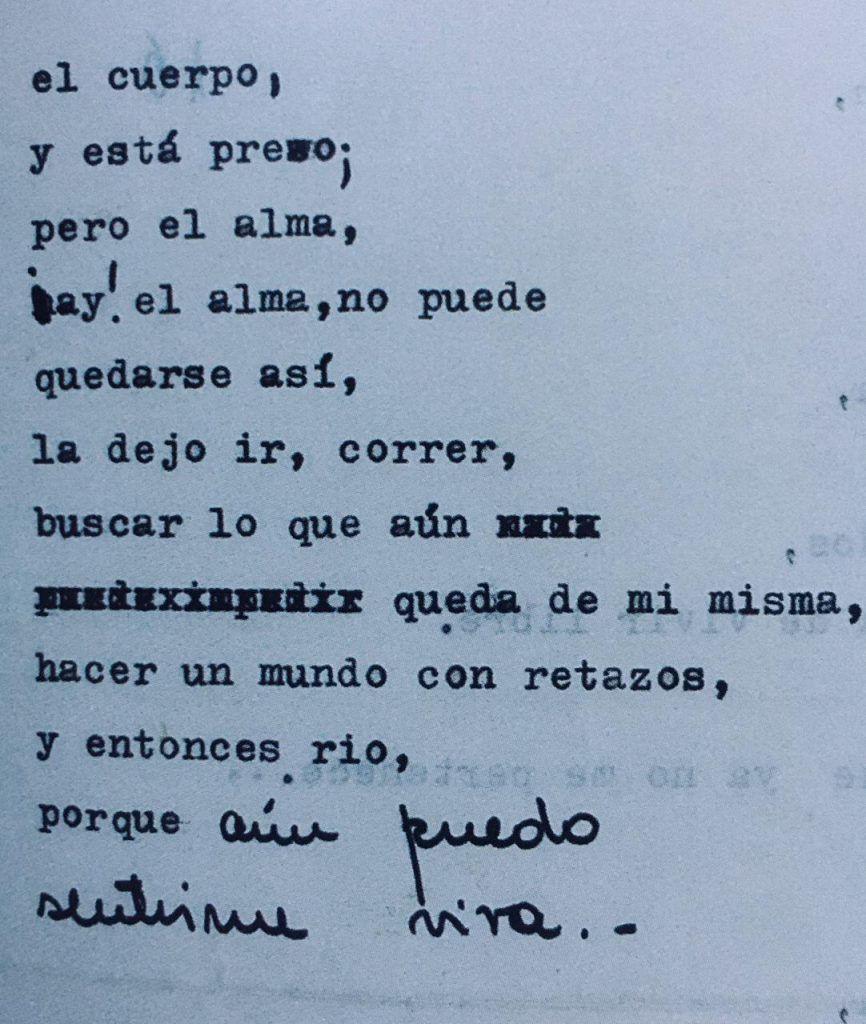 el cuerpo,
y está preso;
pero el alma,
¡ay! el alma,no puede
quedarse así,
la dejo ir, correr,
buscar lo que aún
queda de mi misma,
hacer un mundo con retazos,
y entonces rio,
porque aún puedo
sentirme viva.-